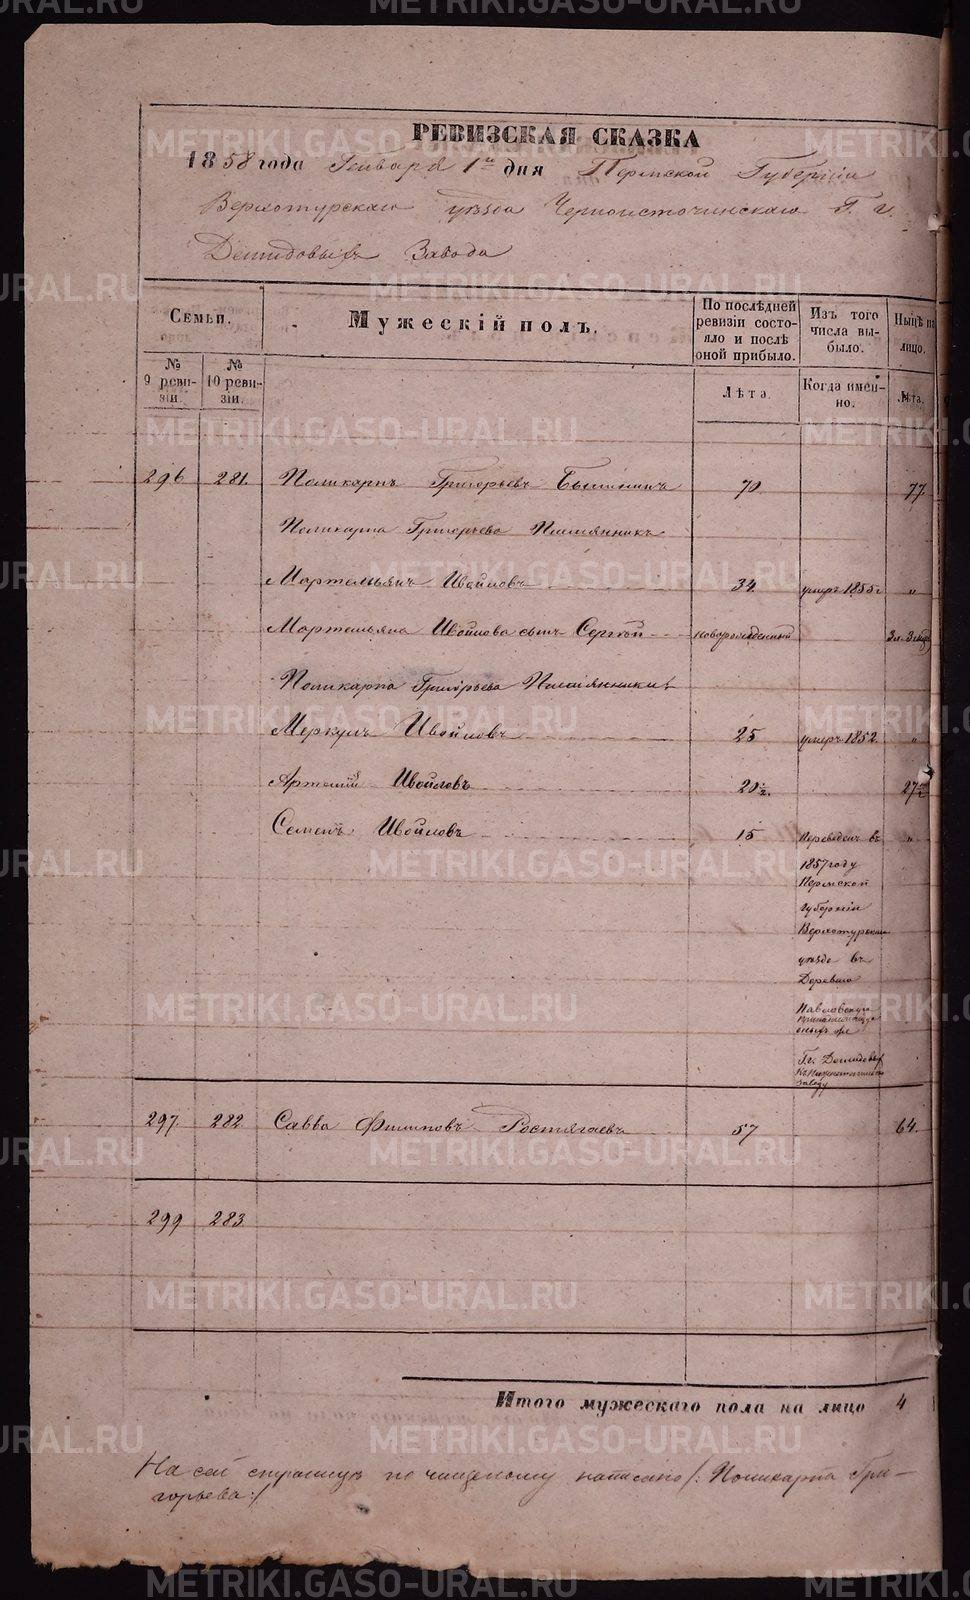 РЕВИЗСКАЯ СКАЗКА
1858 года Генваря 1го дня Пермской Губернiи
Верхотурскаго уѣзда Черноисточинскаго Г. г.
Демидовыхъ Завода
Семьи.
Мужескiй полъ.
По послѣдней ревизiи состояло и послѣ оной прибыло.
Изъ того числа выбыло.
Нынѣ на лицо.
№ 9 ревизiи.
№ 10 ревизiи.
Лѣта.
Когда именно.
Лѣта.
296 281. Поликарпъ Григорьевъ 70 77.
Поликарпа Григорьева Племянникъ
Мартемьянъ Ивойловъ 34. умеръ 1855 г. „
Мартемьяна Ивойлова сынъ Сергѣй новорожденный
Поликарпа Григорьева Племянники
Меркулъ Ивойловъ 25 умеръ 1852. „
Артемiй Ивойловъ 20½. 27½
Семенъ Ивойловъ 15 Переведенъ въ „
1857 году
Пермской
губернiи
Верхотурскаго
уѣзда въ
Деревню
Г.г. Демидовых
заводу
297. 282 Савва Филиповъ Ростягаевъ 57 64.
299 283.
Итого мужескаго пола на лицо 4
На сей страницѣ по чищеному написано /: Поликарпа Гри-
горьева :/
METRIKI.GASO-URAL.RU